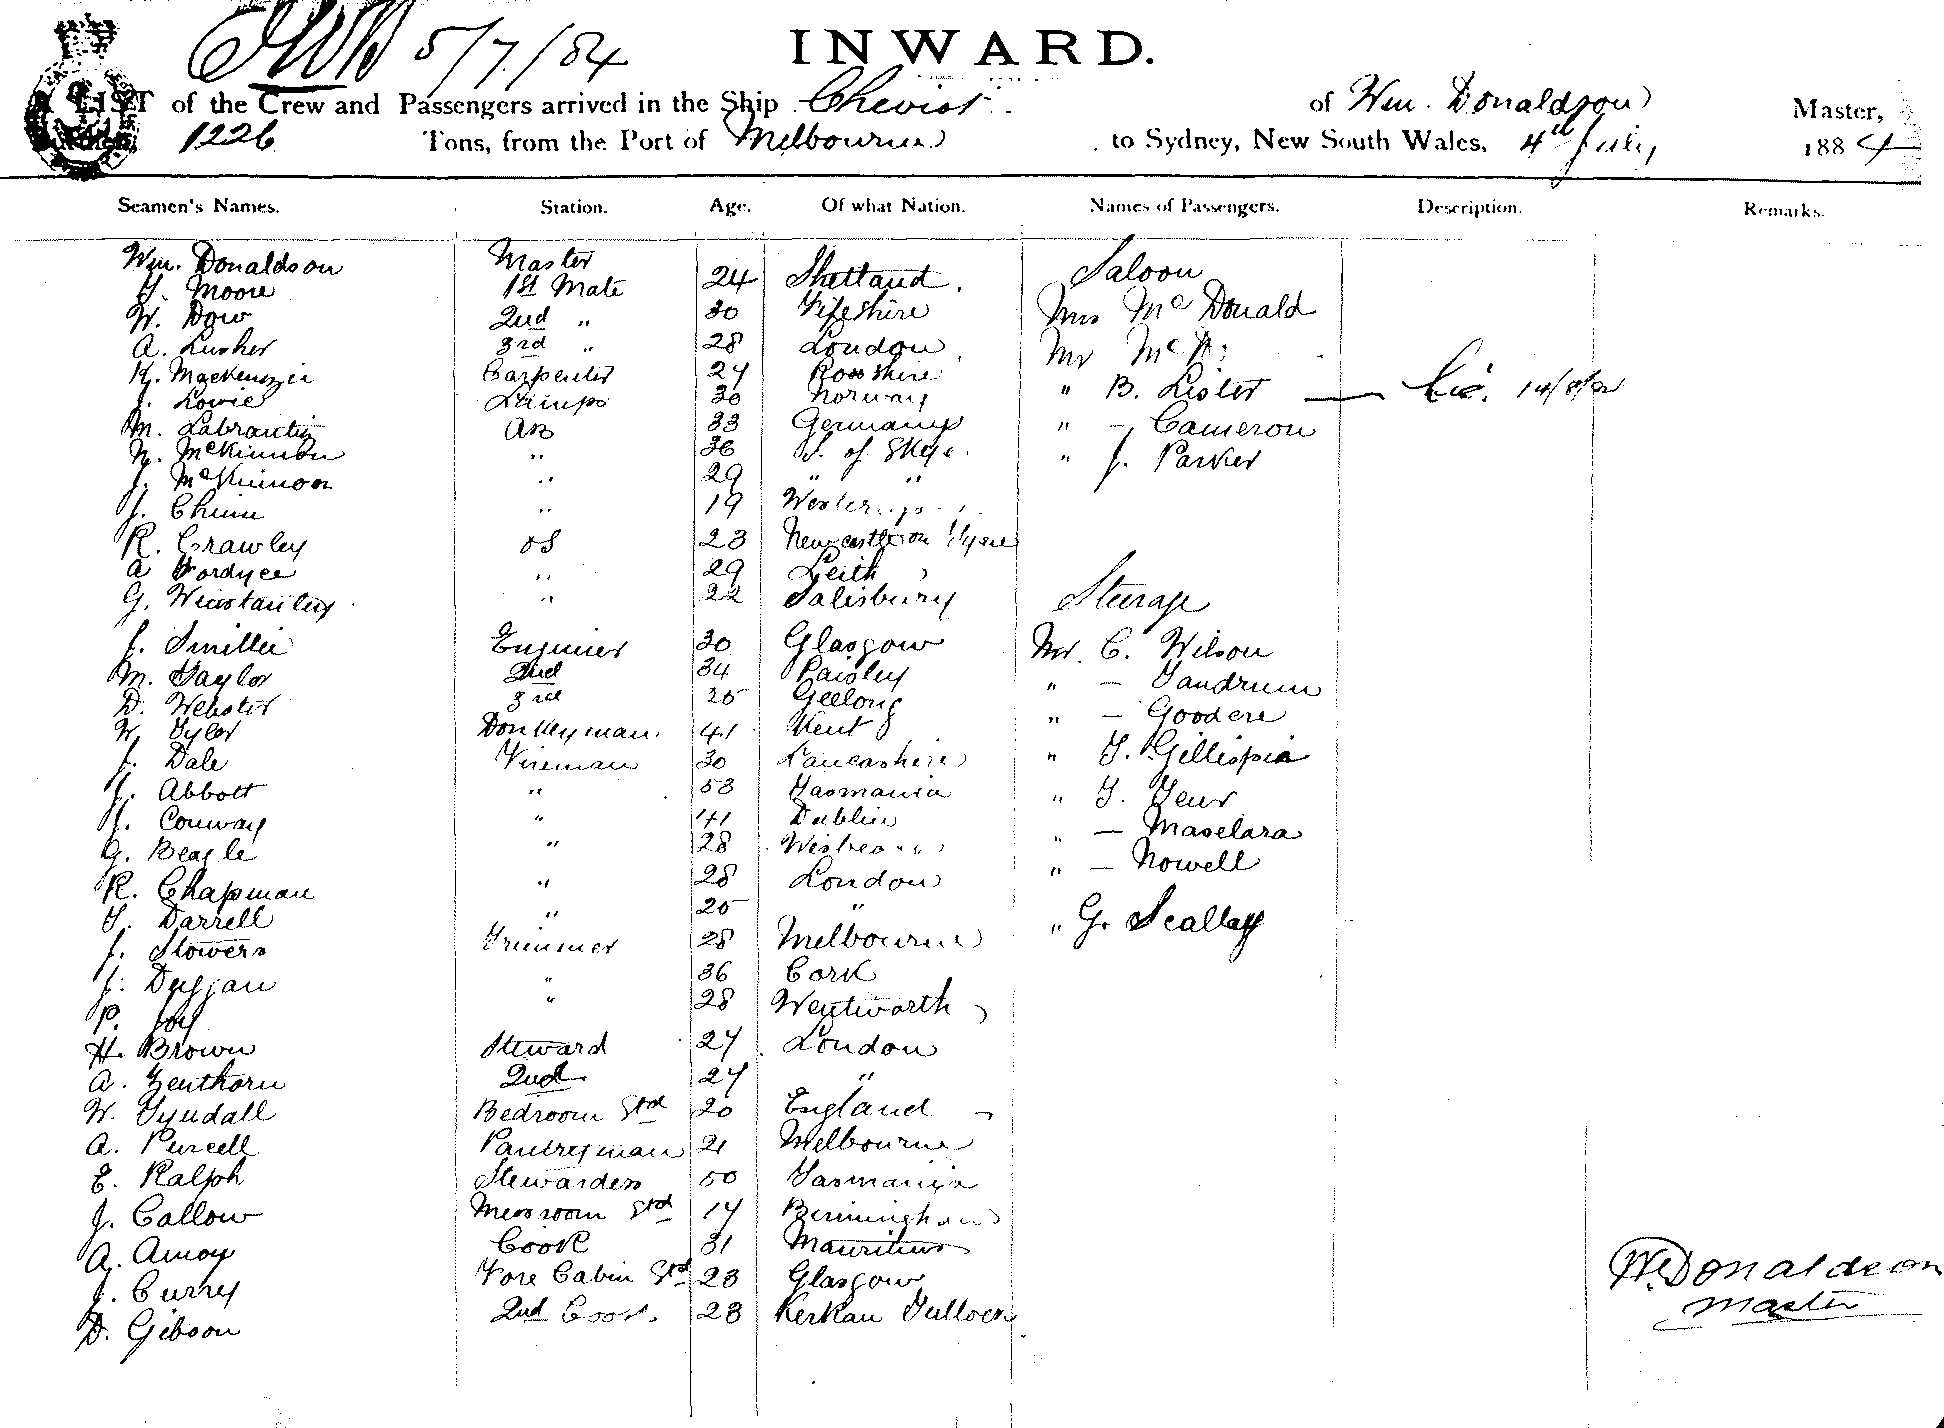 5/7/84
INWARD.
LIST of the Crew and Passengers arrived in the Ship Cheviot of Wm. Donaldson Master,
1226 Tons, from the Port of Melbourne to Sydney, New South Wales, 4th July 1884
Seamen's Names. Station. Age. Of what Nation. Names of Passengers. Description. Remarks.
Wm. Donaldson Master Saloon
T. Moore 1st Mate 24 Shetland. Mrs McDonald
W. Dow 2nd " 30 Fifeshire Mr McD
A. Lusher 3rd " 28 London " B. Lister — 14/8/82
K. Mackenzie Carpenter 24 Rosshire " — Cameron
J. Lowie Lamps 30 Norway " J. Parker
M. AB 33 Germany
N. McKinnon " 36 I. of Skye.
J. McKinnon " 29 " "
J. " 19
R. Crawley OS 23 Newcastle on Tyne
A Fordyce " 29 Leith Steerage
G. Winstanley " 22 Salisbury
J. Smillie Engineer 30 Glasgow Mr. C. Wilson
M. Taylor 2nd 34 Paisley " —
D. Webster 3rd 25 Geelong " — Goodere
W. Tyler Donkeyman. 41 Kent " T. Gillispia
J. Dale Fireman 30 Lancashire " T.
J. Abbott " 53 Tasmania " — Maselara
J. Conway " 41 Dublin " — Nowell
G. Beagle " 28 " G. Scallay
R. Chapman " 28 London
T. Darrell " 25 "
J. Slowers Trimmer 28 Melbourne
J. Duggan " 36 Cork
P. Joy " 28 Wentworth
H. Brown Steward 24 London
A. Zenthorn 2nd 24 "
W. Tyndall Bedroom Std 20 England
A. Purcell Pantryman 21 Melbourne
E. Ralph Stewardess 50 Tasmania
J. Callow Messroom Std 14 Birmingham
A. Amoy Cook 31 Mauritius
J. Curry Fore Cabin Std 23 Glasgow
D. Gibson 2nd Cook. 23
Wm Donaldson
Master